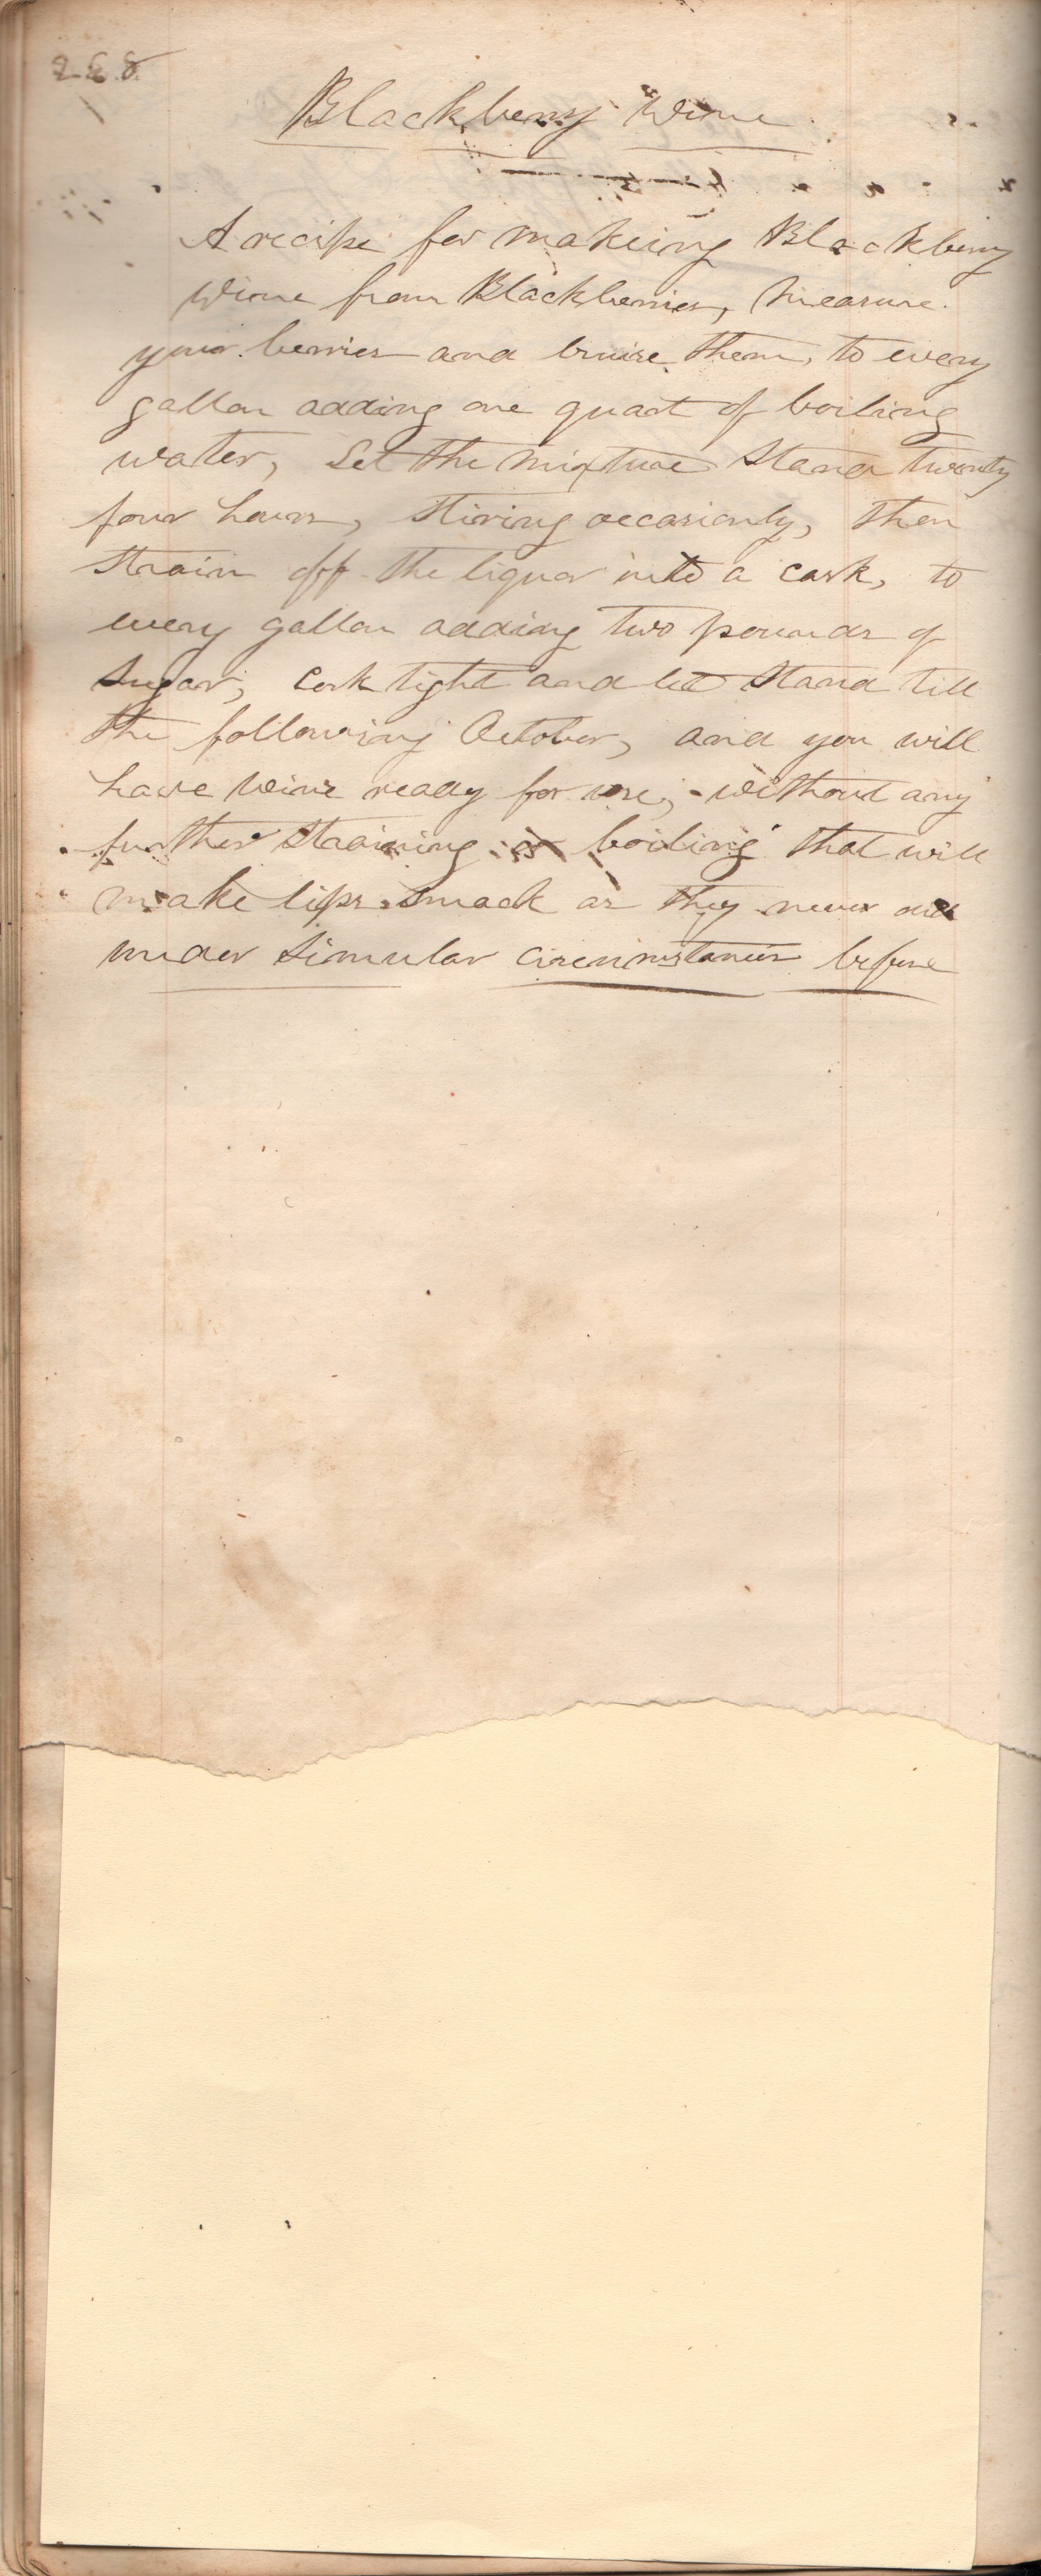 268
Blackberry Wine
A recipe for makeing Blackberry
Wine from Blackberries, Measure
your berries and bruise them, to every
gallon adding one quart of boiling
water, Let the mixture Stand twenty
four hours, Stiring occasionly, then
Strain off the liquor into a cask, to
every gallon adding two pounds of
Sugar, Cork tight and let Stand till
the following October, and you will
have Wine ready for use, without any
further Straining or boiling that will
make lips Smack as they never did
under Simular Circumstances before